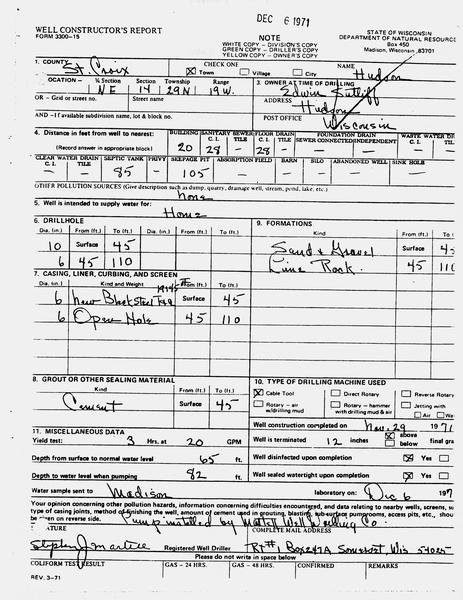 DEC 6 1971
WELL CONSTRUCTOR'S REPORT
FORM 3300-15
NOTE
WHITE COPY – DIVISION'S COPY
GREEN COPY – DRILLER'S COPY
YELLOW COPY – OWNER'S COPY
STATE OF WISCONSIN
DEPARTMENT OF NATURAL RESOURCE
Box 450
Madison, Wisconsin 53701
1. COUNTY St. Croix
CHECK ONE
Town Village City
NAME Hudson
OCATION – ¼ Section Section Township Range
NE 14 29N 19W.
3. OWNER AT TIME OF DRILLING
Edwin Sutliff
OR – Grid or street no. Street name
ADDRESS
Hudson
AND – If available subdivision name, lot & block no.
POST OFFICE
Wisconsin
4. Distance in feet from well to nearest:
(Record answer in appropriate block)
BUILDING SANITARY SEWER FLOOR DRAIN FOUNDATION DRAIN WASTE WATER DR
C. I. TILE C. I. TILE SEWER CONNECTED INDEPENDENT C. I. TILE
20 28 – 28 – – – –
CLEAR WATER DRAIN SEPTIC TANK PRIVY SEEPAGE PIT ABSORPTION FIELD BARN SILO ABANDONED WELL SINK HOLE
C. I. TILE
– – 85 – 105 – – – – –
OTHER POLLUTION SOURCES (Give description such as dump, quarry, drainage well, stream, pond, lake, etc.)
none
5. Well is intended to supply water for:
Home
6. DRILLHOLE
Dia. (in.) From (ft.) To (ft.) Dia. (in.) From (ft.) To (ft.)
10 Surface 45
6 45 110
9. FORMATIONS
Kind From (ft.) To (ft.)
Sand & Gravel Surface 45
Lime Rock 45 110
7. CASING, LINER, CURBING, AND SCREEN
Dia. (in.) Kind and Weight From (ft.) To (ft.)
6 New Black Steel T&C Surface 45
6 Open Hole 45 110
8. GROUT OR OTHER SEALING MATERIAL
Kind From (ft.) To (ft.)
Cement Surface 45
10. TYPE OF DRILLING MACHINE USED
Cable Tool Direct Rotary Reverse Rotary
Rotary – air w/drilling mud Rotary – hammer with drilling mud & air Jetting with
Air Wa
Well construction completed on Nov. 29 1971
11. MISCELLANEOUS DATA
Yield test: 3 Hrs. at 20 GPM
Well is terminated 12 inches above below final gra
Depth from surface to normal water level 65 ft.
Well disinfected upon completion Yes
Depth to water level when pumping 82 ft.
Well sealed watertight upon completion Yes
Water sample sent to Madison laboratory on: Dec 6 197
Your opinion concerning other pollution hazards, information concerning difficulties encountered, and data relating to nearby wells, screens, s
type of casing joints, method of finishing the well, amount of cement used in grouting, blasting, sub-surface pumprooms, access pits, etc., shou
be given on reverse side.
Pump installed by Well Drilling Co.
ATURE
COMPLETE MAIL ADDRESS
Registered Well Driller
Rt #1 Box 247A Somerset, Wis 54025
Please do not write in space below
COLIFORM TEST RESULT GAS – 24 HRS. GAS – 48 HRS. CONFIRMED REMARKS
REV. 3–71